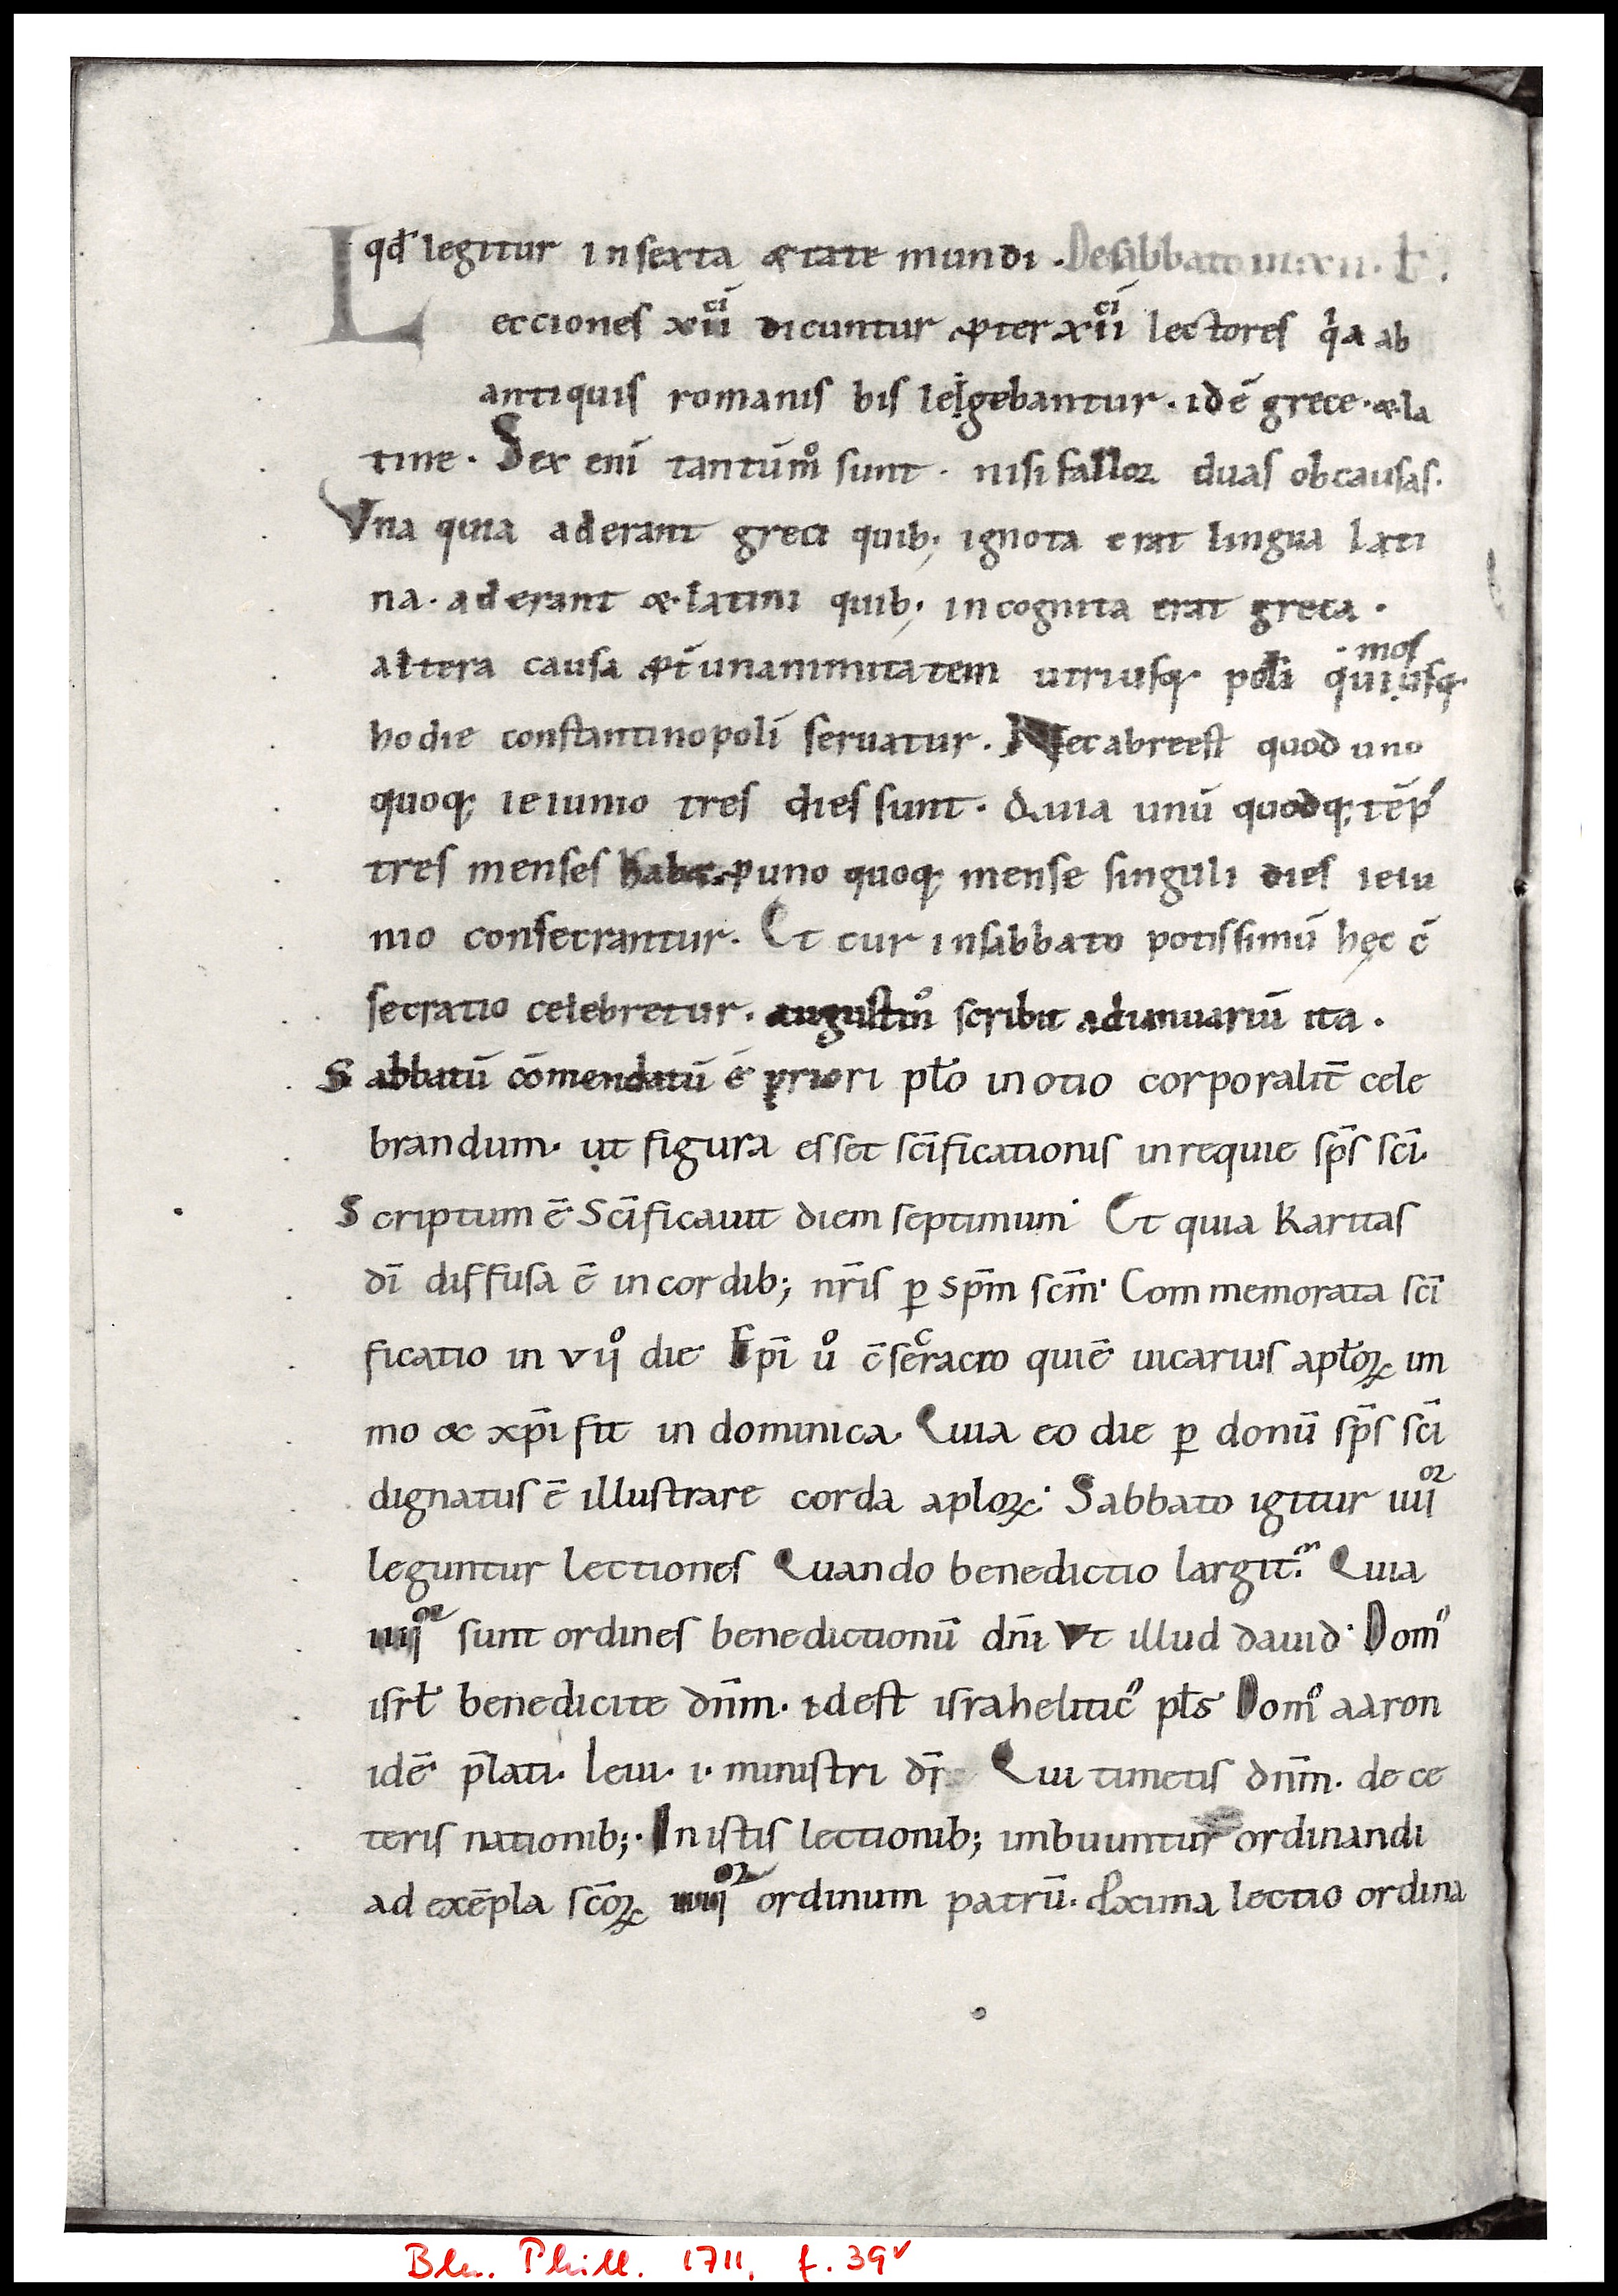 qđ legitur in sexta ętate mundi . De sabbato in xii . ł .
Lecciones xii^ci dicuntur ꝓpter xii^ci lectores qͥa ab
antiquis romanis bis legebantur . idē grece · & la
tine . Sex enī tantūmͦ sunt . nisi falloꝝ duas ob causas .
Vna quia aderant greci quib; ignota erat lingua lati
na . aderant & latini quib; incognita erat greca .
altera causa ꝓt̄ unanimitatem utriusq; poli qui · mos usq;
hodie constantinopoli seruatur . Nec ab re est quod uno
quoq; ieiunio tres dies sunt . Quia unū quodq; tēp̄
tres menses habet · ꝓ uno quoq; mense singuli dies ieiu
nio consecrantur . Et cur in sabbato potissimū hęc c̄
secratio celebretur . augustinͦ scribit ad ianuariū ita .
Sabbatū cōmendatū ē priori pło in otio corporalit̄ cele
brandum . ut figura esset sc̄ificationis in requie sp̄s sc̄i .
Scriptum ē · Sc̄ificauit diem septimum · Et quia Karitas
dī diffusa ē in cordib; nr̄is ꝑ sp̄m sc̄m · Commemorata sc̄i
ficatio in vijͦ die · Ep̄i uͦ c̄secracio qui ē uicarius apłoꝝ im
mo & xp̄i fit in dominica . Quia eo die ꝑ donū sp̄s sc̄i
dignatus ē illustrare corda aploꝝ · Sabbato igitur iiii^or
leguntur lectiones Quando benedictio largit^r . Quia
iiij^or sunt ordines benedictionū dn̄i Vt illud dauid · Domͦ
isrł benedicite dn̄m . idest israheliticͦ płs · Domͦ aaron
idē p̄lati . leui . i . ministri dī Qui timetis dn̄m . de ce
teris nationib; · In istis lectionib; imbuuntur ordinandi
ad exēpla sc̄oꝝ iiij^or ordinum patrū . Ꝓxima lectio ordina
Bln. Phill. 1711, f. 39v